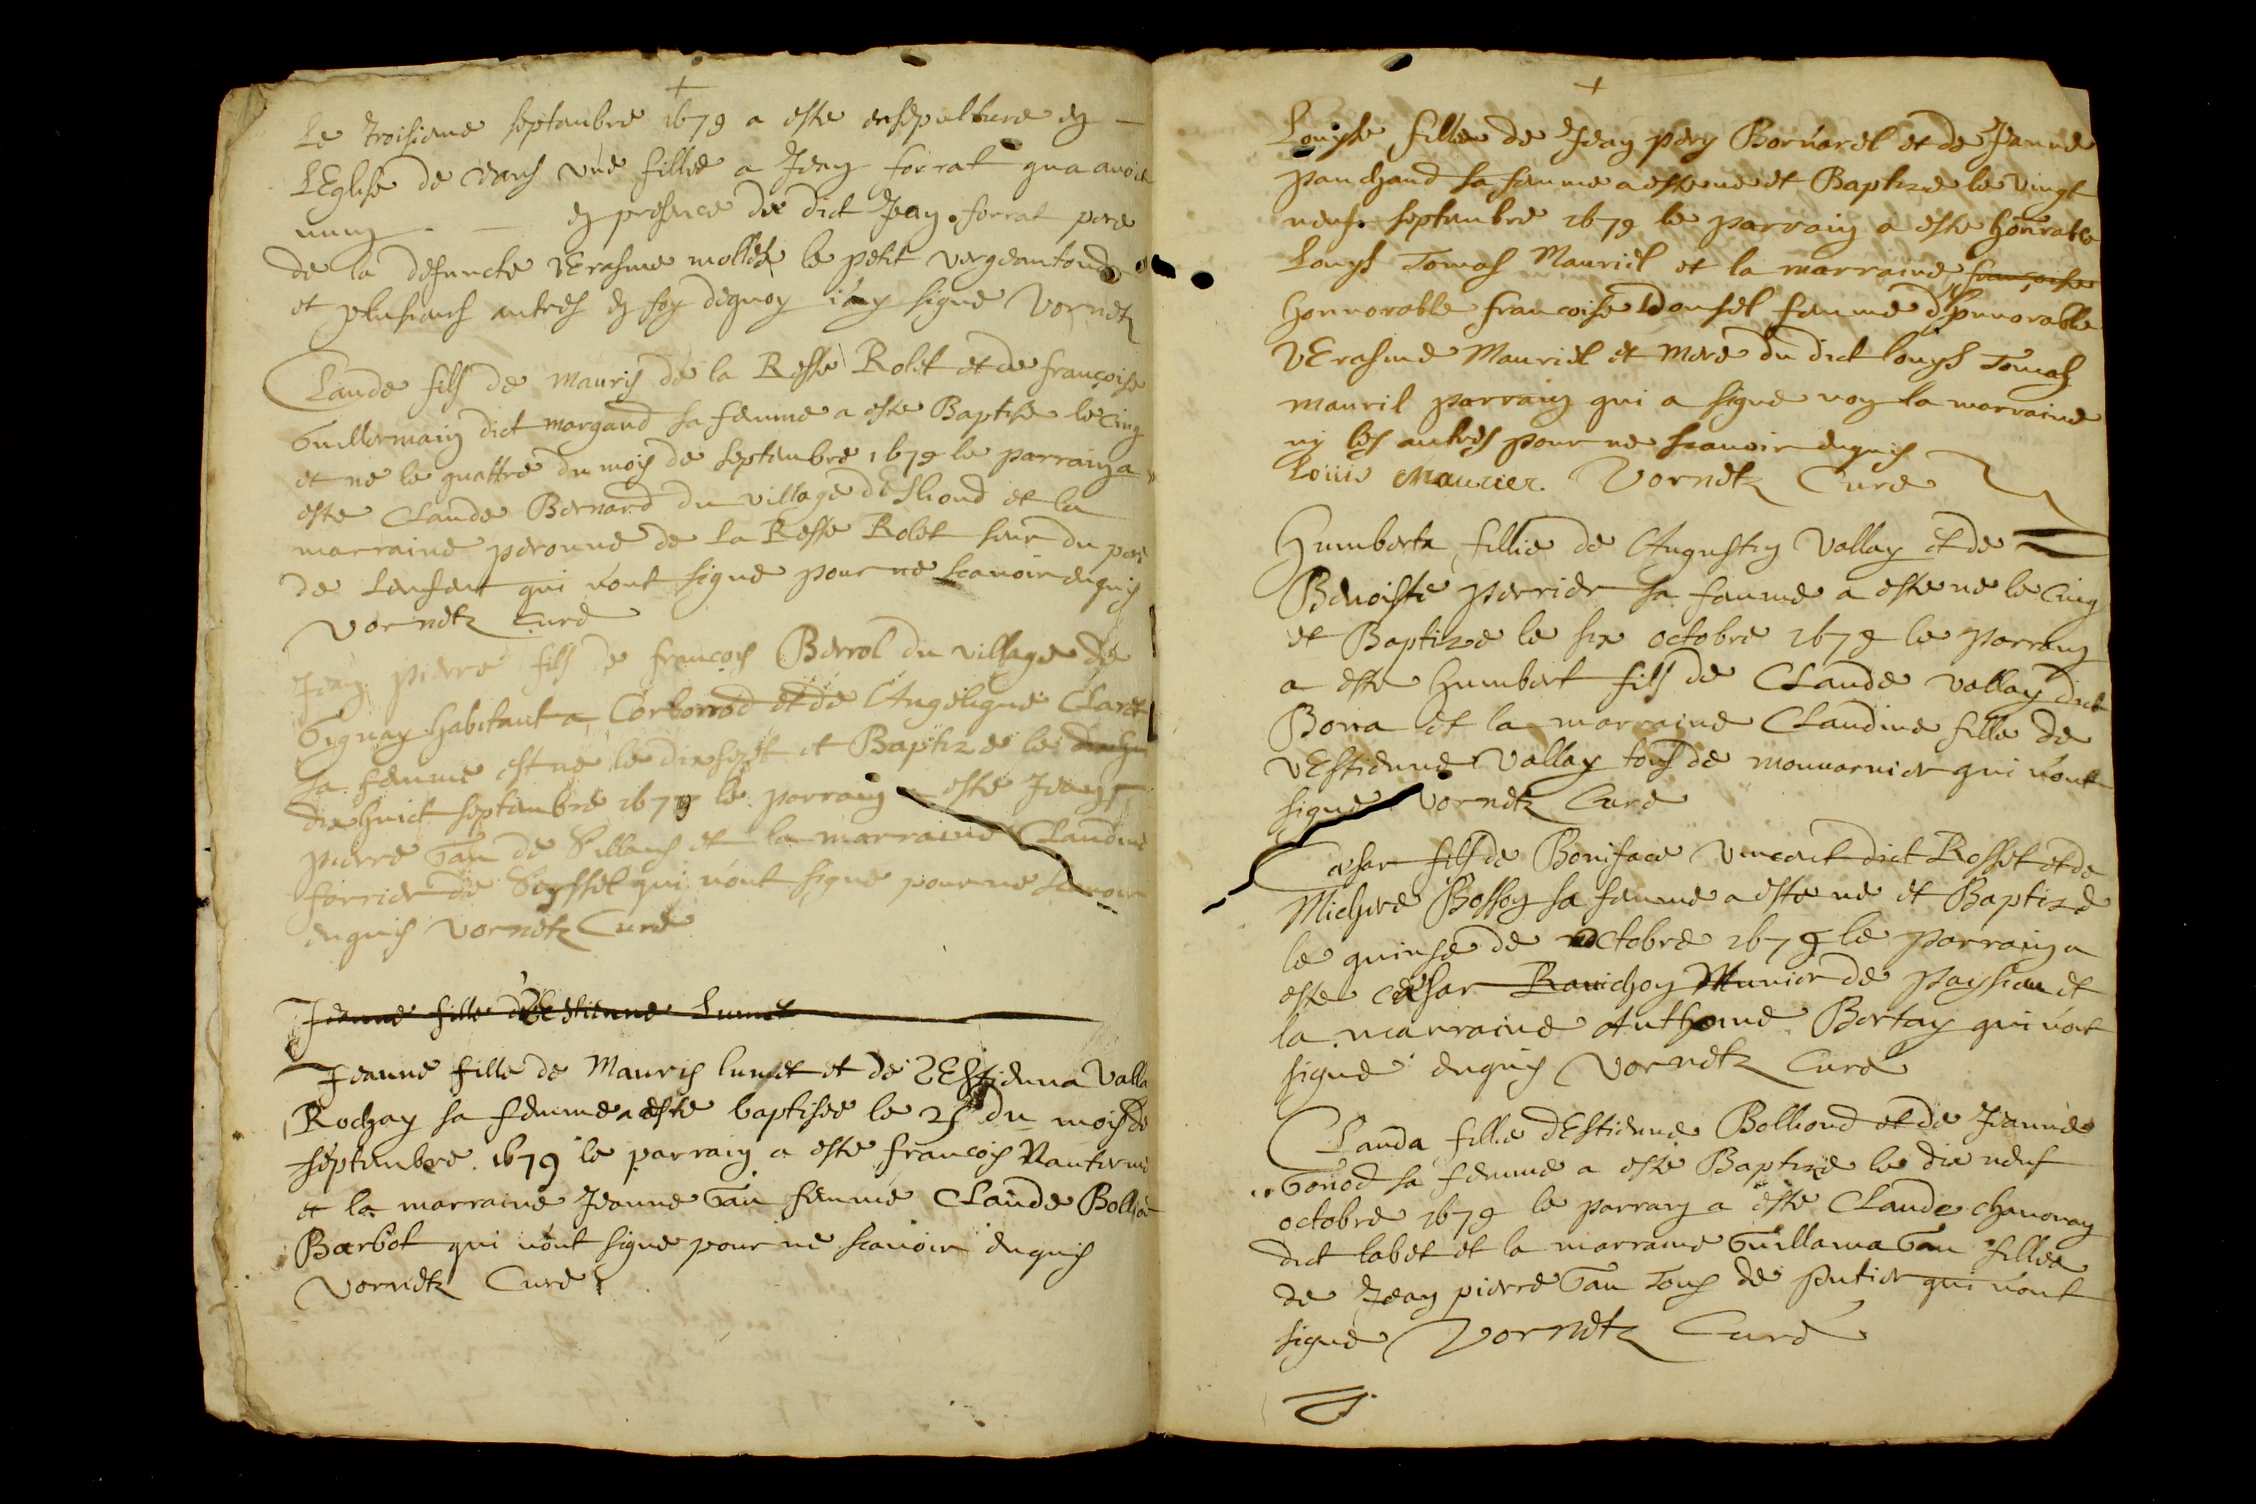 Le troisiesme septambre 1679 a este ensepulture en
LEglise de ceans une fillie a Jean forrat qua avoit
nung en presence de dict Jean forrat pere
de la defuncte Erasme mollet le petit
et plusieurs autres en foy dequoy i'ay signe Vornetz
Claude fils de Mauris de la Resse Rolet et de françoise
Guillermain dict margand sa femme a este Baptise le Cinq
et ne le quattre du mois de septembre 1679 le parrain a
este Claude Bernard du village de et la
marraine peronne de La Resse Rolet seur du pere
de Lenfant qui n'ont signe pour ne scavoir enquis
Vornetz Curé
Jean pierre fils de françois Berrol du village de
Gignay habitant a Corborrod et de Angeligue Claret
sa femme est ne le dixsept et Baptize le
dix huict septembre 1679 le parrain a este Jean
pierre Gau de Sillans et la marraine Claudine
forrier de Seyssel qui n'ont signe pour ne scavoir
enquis Vornetz Curé
Jeanne fille d'Estienne Lumet
Jeanne fille de Mauris lumet et de Estienna Valla
Rochay sa femme a este baptisee le 25 du mois de
septembre 1679 le parrain a este françois Nanterme
et la marraine Jeanne Gau femme Claude
Barbot qui n'ont signe pour ne scavoir enquis
Vornetz Curé
Louyse fillie de Jean pery Bornarel et de Jeanne
panchaud sa femme a este ne et Baptize le vingt
neuf septambre 1679 le parrain a este honrable
Louys Tomas Mauriel et la marraine françoise
honnorable françoise femme d'honnorable
Erasme Mauriel et mere du dict louys Tomas
mauril parrain qui a signe non la marraine
ny les autres pour ne scavoir enquis
Louis Maurier Vornetz Curé
Humberta fillie de Augustin Vallay et de
Benoiste perrier sa femme a este ne le Cinq
et Baptize le six octobre 1679 le parrain
a este humbert fils de Claude vallay dict
Borra et la marraine Claudine fille de
Estienne Vallay tous de monvarnier qui n'ont
signe Vornetz Curé
Cæsar fils de Boniface Vincent dict Rosset et de
Michere Bosson sa femme a este ne et Baptize
le quinse de octobre 1679 le parrain a
este cæsar Ravichoy Munier de et
la marraine Anthoine Bertay qui n'ont
signe enquis Vornetz Curé
Clauda fillie dEstienne Bolliond et de Jeanne
Gonod sa femme a este Baptize le dix neuf
octobre 1679 le parrain a este Claude chanoray
dict labet et la marraine Guillama Gau fillie
de Jean pierre Gau Tous de putier qui n'ont
signé Vornetz Curé